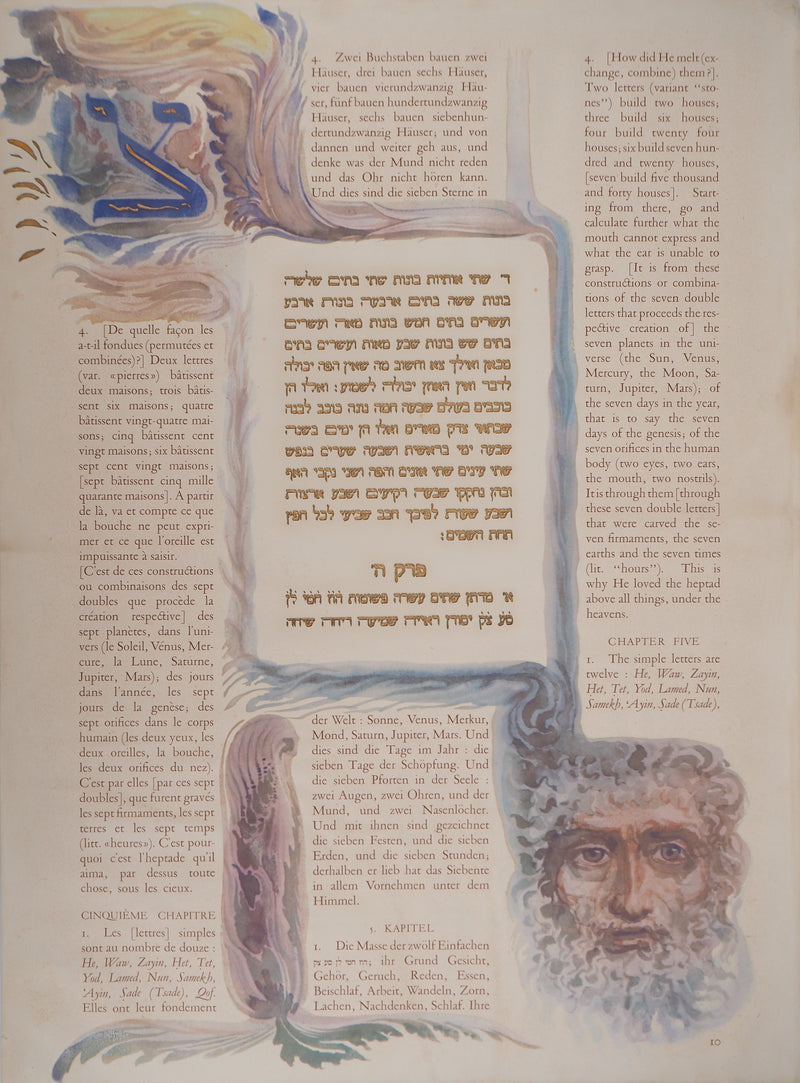 4. [De quelle façon les
a-t-il fondues (permutées et
combinées)?] Deux lettres
(var. «pierres») bâtissent
deux maisons; trois bâtis-
sent six maisons; quatre
bâtissent vingt-quatre mai-
sons; cinq bâtissent cent
vingt maisons; six bâtissent
sept cent vingt maisons;
[sept bâtissent cinq mille
quarante maisons]. A partir
de là, va et compte ce que
la bouche ne peut expri-
mer et ce que l'oreille est
impuissante à saisir.
[C'est de ces constructions
ou combinaisons des sept
doubles que procède la
création respective] des
sept planètes, dans l'uni-
vers (le Soleil, Vénus, Mer-
cure, la Lune, Saturne,
Jupiter, Mars); des jours
dans l'année, les sept
jours de la genèse; des
sept orifices dans le corps
humain (les deux yeux, les
deux oreilles, la bouche,
les deux orifices du nez).
C'est par elles [par ces sept
doubles], que furent gravés
les sept firmaments, les sept
terres et les sept temps
(litt. «heures»). C'est pour-
quoi c'est l'heptade qu'il
aima, par dessus toute
chose, sous les cieux.
CINQUIÈME CHAPITRE
1. Les [lettres] simples
sont au nombre de douze :
He, Waw, Zayin, Het, Tet,
Yod, Lamed, Nun, Samekh,
'Ayin, Sade (Tsade), Qof.
Elles ont leur fondement
4. Zwei Buchstaben bauen zwei
Häuser, drei bauen sechs Häuser,
vier bauen vierundzwanzig Häu-
ser, fünf bauen hundertundzwanzig
Häuser, sechs bauen siebenhun-
dertundzwanzig Häuser; und von
dannen und weiter geh aus, und
denke was der Mund nicht reden
und das Ohr nicht hören kann.
Und dies sind die sieben Sterne in
ד' שתי אותיות בונות שתי בתים שלשה
בונות ששה בתים ארבעה בונות ארבע
ועשרים בתים חמש בונות מאה ועשרים
בתים שש בונות שבע מאות ועשרים בתים
מכאן ואילך צא וחשוב מה שאין הפה יכולה
לדבר ואין האוזן יכולה לשמוע : ואלו הן
כוכבים בעולם שבעה חמה נוגה כוכב לבנה
שבתאי צדק מאדים ואלו הן ימים בשנה
שבעה ימי בראשית ושבעה שערים בנפש
שתי עינים שתי אזנים והפה ושני נקבי האף
ובהן נחקקו שבעה רקיעים ושבע ארצות
ושבע שעות לפיכך חבב שביעי לכל חפץ
תחת השמים:
פרק ה'
א' מדתן שתים עשרה פשוטות הו זח טי לן
סע צק יסודן ראיה שמיעה ריחה שיחה
der Welt : Sonne, Venus, Merkur,
Mond, Saturn, Jupiter, Mars. Und
dies sind die Tage im Jahr : die
sieben Tage der Schöpfung. Und
die sieben Pforten in der Seele :
zwei Augen, zwei Ohren, und der
Mund, und zwei Nasenlöcher.
Und mit ihnen sind gezeichnet
die sieben Festen, und die sieben
Erden, und die sieben Stunden;
derhalben er lieb hat das Siebente
in allem Vornehmen unter dem
Himmel.
5. KAPITEL
1. Die Masse der zwölf Einfachen
הוז חטי לן סע צק; ihr Grund Gesicht,
Gehör, Geruch, Reden, Essen,
Beischlaf, Arbeit, Wandeln, Zorn,
Lachen, Nachdenken, Schlaf. Ihre
4. [How did He melt (ex-
change, combine) them?].
Two letters (variant "sto-
nes") build two houses;
three build six houses;
four build twenty four
houses; six build seven hun-
dred and twenty houses,
[seven build five thousand
and forty houses]. Start-
ing from there, go and
calculate further what the
mouth cannot express and
what the ear is unable to
grasp. [It is from these
constructions or combina-
tions of the seven double
letters that proceeds the res-
pective creation of] the
seven planets in the uni-
verse (the Sun, Venus,
Mercury, the Moon, Sa-
turn, Jupiter, Mars); of
the seven days in the year,
that is to say the seven
days of the genesis; of the
seven orifices in the human
body (two eyes, two ears,
the mouth, two nostrils).
It is through them [through
these seven double letters]
that were carved the se-
ven firmaments, the seven
earths and the seven times
(lit. "hours"). This is
why He loved the heptad
above all things, under the
heavens.
CHAPTER FIVE
1. The simple letters are
twelve : He, Waw, Zayin,
Het, Tet, Yod, Lamed, Nun,
Samekh, 'Ayin, Sade (Tsade),
10